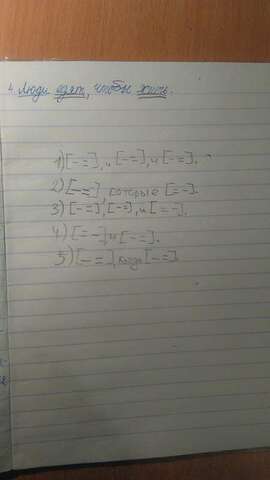 4. Люди едят, чтобы жить.
1) [- =], и [- =], и [- =].
2) [- =], которые [= -].
3) [- =], [- =], и [= -].
4) [= -], и [- =].
5) [- =], когда [- =].